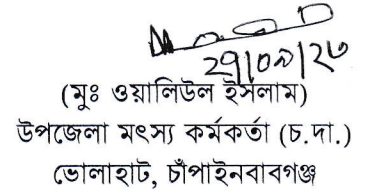 ২৭/০৯/২৩
(মুঃ ওয়ালিউল ইসলাম)
উপজেলা মৎস্য কর্মকর্তা (চ.দা.)
ভোলাহাট, চাঁপাইনবাবগঞ্জ